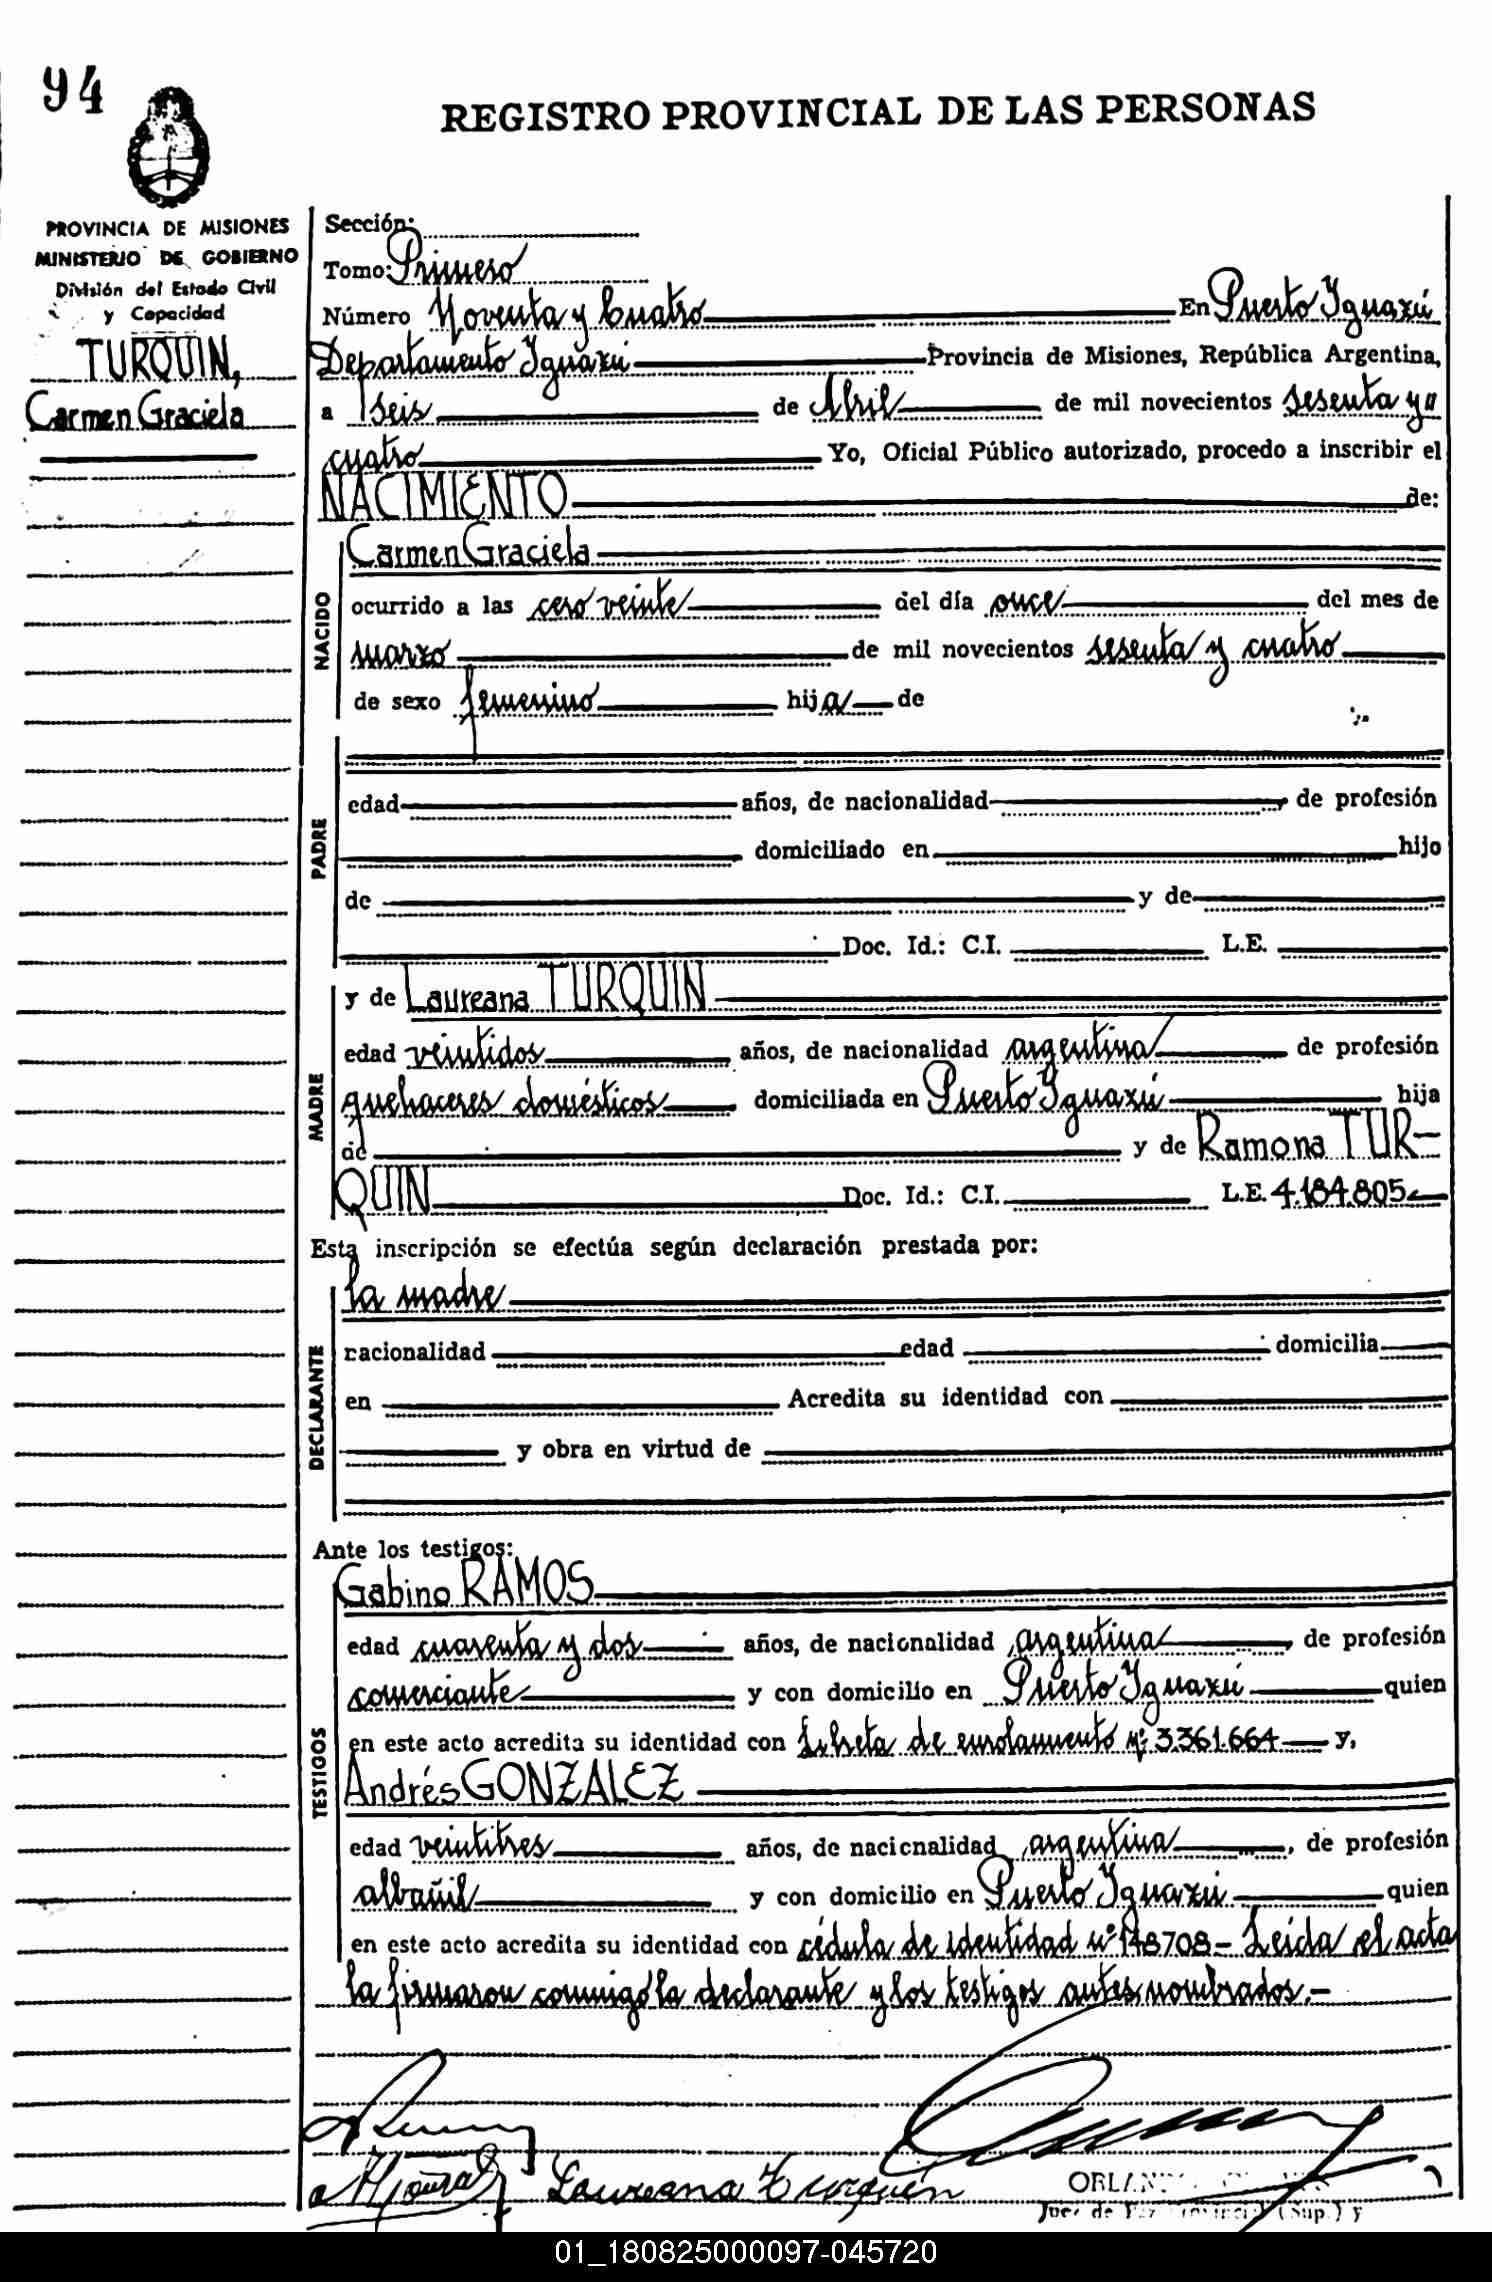 94
REGISTRO PROVINCIAL DE LAS PERSONAS
PROVINCIA DE MISIONES
MINISTERIO DE GOBIERNO
División del Estado Civil
y Capacidad
TURQUIN,
Carmen Graciela
Sección:
Tomo: Primero
Número Noventa y Cuatro En Puerto Iguazú
Departamento Iguazú Provincia de Misiones, República Argentina,
a seis de Abril de mil novecientos sesenta y
cuatro Yo, Oficial Público autorizado, procedo a inscribir el
NACIMIENTO de:
NACIDO
Carmen Graciela
ocurrido a las cero veinte del día once del mes de
marzo de mil novecientos sesenta y cuatro
de sexo femenino hija de
PADRE
edad años, de nacionalidad , de profesión
domiciliado en hijo
de y de
Doc. Id.: C.I. L.E.
MADRE
y de Laureana TURQUIN
edad veintidos años, de nacionalidad argentina de profesión
quehaceres domésticos domiciliada en Puerto Iguazú hija
de y de Ramona TUR-
QUIN Doc. Id.: C.I. L.E. 4.184.805
Esta inscripción se efectúa según declaración prestada por:
DECLARANTE
la madre
nacionalidad edad domicilia
en Acredita su identidad con
y obra en virtud de
Ante los testigos:
TESTIGOS
Gabino RAMOS
edad cuarenta y dos años, de nacionalidad argentina, de profesión
comerciante y con domicilio en Puerto Iguazú quien
en este acto acredita su identidad con Libreta de enrolamiento nº 3.361.664 y,
Andrés GONZALEZ
edad veintitres años, de nacionalidad argentina, de profesión
albañil y con domicilio en Puerto Iguazú quien
en este acto acredita su identidad con cédula de identidad nº 148708 - Leída el acta
la firmaron conmigo la declarante y los testigos antes nombrados.-
Laureana Turquin
Juez de Paz Provincial (Sup.) y
01_180825000097-045720